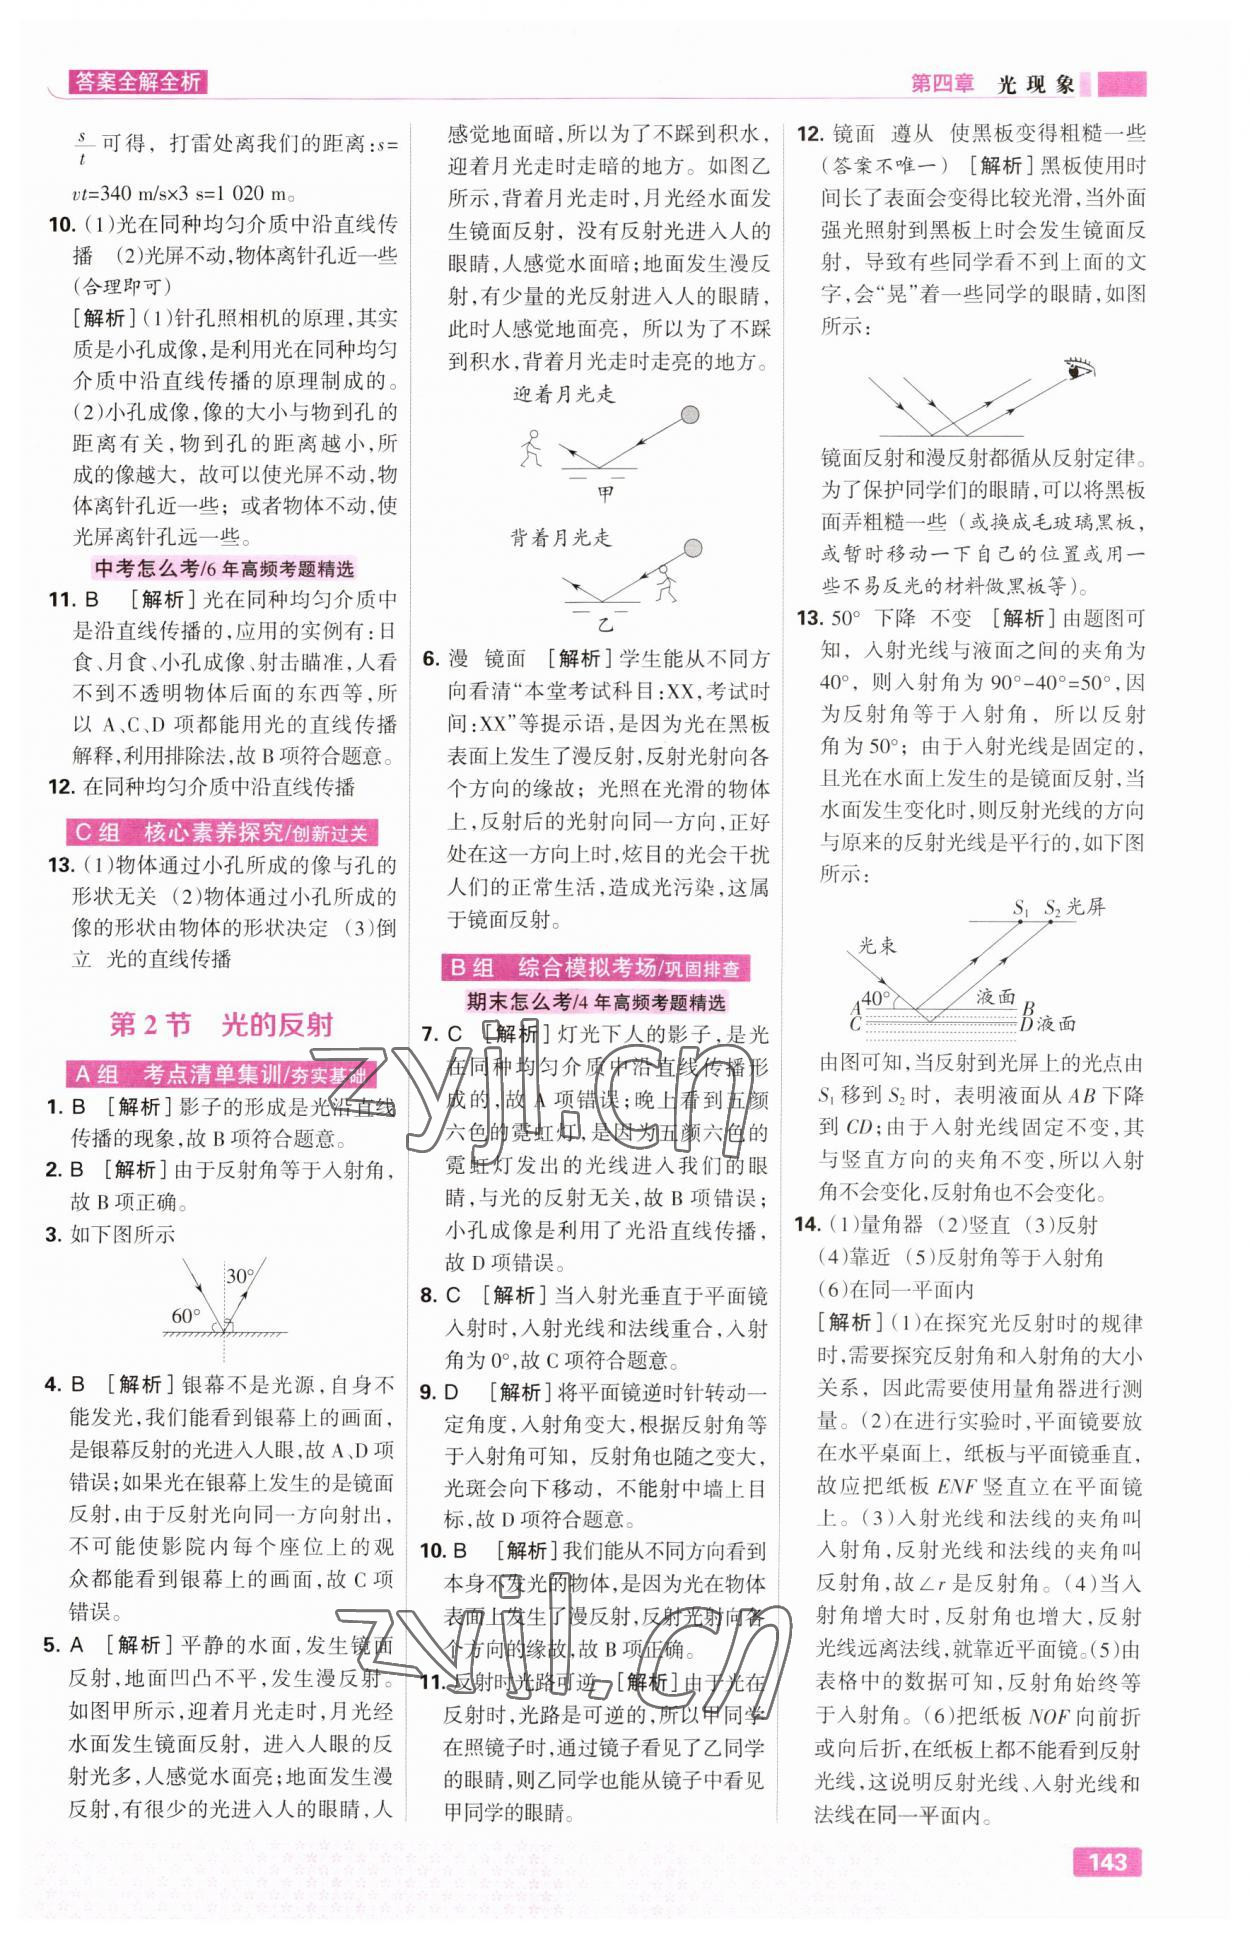 答案全解全析
第四章 光现象
s/t 可得，打雷处离我们的距离:s=
vt=340 m/s×3 s=1 020 m。
10. (1)光在同种均匀介质中沿直线传
播 (2)光屏不动,物体离针孔近一些
(合理即可)
[解析](1)针孔照相机的原理,其实
质是小孔成像,是利用光在同种均匀
介质中沿直线传播的原理制成的。
(2)小孔成像,像的大小与物到孔的
距离有关,物到孔的距离越小,所
成的像越大，故可以使光屏不动,物
体离针孔近一些；或者物体不动,使
光屏离针孔远一些。
中考怎么考/6年高频考题精选
11. B [解析]光在同种均匀介质中
是沿直线传播的,应用的实例有:日
食、月食、小孔成像、射击瞄准,人看
不到不透明物体后面的东西等,所
以 A、C、D 项都能用光的直线传播
解释,利用排除法,故 B 项符合题意。
12. 在同种均匀介质中沿直线传播
C组 核心素养探究/创新过关
13. (1)物体通过小孔所成的像与孔的
形状无关 (2)物体通过小孔所成的
像的形状由物体的形状决定 (3)倒
立 光的直线传播
第2节 光的反射
A组 考点清单集训/夯实基础
1. B [解析]影子的形成是光沿直线
传播的现象,故 B 项符合题意。
2. B [解析]由于反射角等于入射角,
故 B 项正确。
3. 如下图所示
30°
60°
4. B [解析]银幕不是光源,自身不
能发光,我们能看到银幕上的画面,
是银幕反射的光进入人眼,故 A、D 项
错误;如果光在银幕上发生的是镜面
反射,由于反射光向同一方向射出,
不可能使影院内每个座位上的观
众都能看到银幕上的画面,故 C 项
错误。
5. A [解析]平静的水面,发生镜面
反射,地面凹凸不平,发生漫反射。
如图甲所示,迎着月光走时,月光经
水面发生镜面反射，进入人眼的反
射光多,人感觉水面亮;地面发生漫
反射,有很少的光进入人的眼睛,人
感觉地面暗,所以为了不踩到积水,
迎着月光走时走暗的地方。如图乙
所示,背着月光走时,月光经水面发
生镜面反射，没有反射光进入人的
眼睛,人感觉水面暗;地面发生漫反
射,有少量的光反射进入人的眼睛,
此时人感觉地面亮，所以为了不踩
到积水,背着月光走时走亮的地方。
迎着月光走
甲
背着月光走
乙
6. 漫 镜面 [解析]学生能从不同方
向看清“本堂考试科目:XX,考试时
间:XX”等提示语,是因为光在黑板
表面上发生了漫反射,反射光射向各
个方向的缘故；光照在光滑的物体
上,反射后的光射向同一方向,正好
处在这一方向上时,炫目的光会干扰
人们的正常生活,造成光污染,这属
于镜面反射。
B组 综合模拟考场/巩固排查
期末怎么考/4年高频考题精选
7. C [解析]灯光下人的影子,是光
在同种均匀介质中沿直线传播形
成的,故 A 项错误;晚上看到五颜
六色的霓虹灯,是因为五颜六色的
霓虹灯发出的光线进入我们的眼
睛,与光的反射无关,故 B 项错误;
小孔成像是利用了光沿直线传播,
故 D 项错误。
8. C [解析]当入射光垂直于平面镜
入射时,入射光线和法线重合,入射
角为0°,故 C 项符合题意。
9. D [解析]将平面镜逆时针转动一
定角度,入射角变大,根据反射角等
于入射角可知，反射角也随之变大,
光斑会向下移动，不能射中墙上目
标,故 D 项符合题意。
10. B [解析]我们能从不同方向看到
本身不发光的物体,是因为光在物体
表面上发生了漫反射,反射光射向各
个方向的缘故,故 B 项正确。
11. 反射时光路可逆 [解析]由于光在
反射时,光路是可逆的,所以甲同学
在照镜子时,通过镜子看见了乙同学
的眼睛,则乙同学也能从镜子中看见
甲同学的眼睛。
12. 镜面 遵从 使黑板变得粗糙一些
(答案不唯一) [解析]黑板使用时
间长了表面会变得比较光滑,当外面
强光照射到黑板上时会发生镜面反
射，导致有些同学看不到上面的文
字,会“晃”着一些同学的眼睛,如图
所示：
镜面反射和漫反射都循从反射定律。
为了保护同学们的眼睛,可以将黑板
面弄粗糙一些（或换成毛玻璃黑板,
或暂时移动一下自己的位置或用一
些不易反光的材料做黑板等)。
13. 50° 下降 不变 [解析]由题图可
知，入射光线与液面之间的夹角为
40°，则入射角为 90°-40°=50°,因
为反射角等于入射角，所以反射
角为50°；由于入射光线是固定的,
且光在水面上发生的是镜面反射,当
水面发生变化时,则反射光线的方向
与原来的反射光线是平行的,如下图
所示：
S1 S2 光屏
光束
40°
液面
A B
C D 液面
由图可知,当反射到光屏上的光点由
S1移到 S2时，表明液面从 AB 下降
到 CD;由于入射光线固定不变,其
与竖直方向的夹角不变,所以入射
角不会变化,反射角也不会变化。
14. (1)量角器 (2)竖直 (3)反射
(4)靠近 (5)反射角等于入射角
(6)在同一平面内
[解析](1)在探究光反射时的规律
时,需要探究反射角和入射角的大小
关系，因此需要使用量角器进行测
量。(2)在进行实验时,平面镜要放
在水平桌面上，纸板与平面镜垂直,
故应把纸板 ENF 竖直立在平面镜
上。(3)入射光线和法线的夹角叫
入射角,反射光线和法线的夹角叫
反射角,故∠r 是反射角。(4)当入
射角增大时,反射角也增大,反射
光线远离法线,就靠近平面镜。(5)由
表格中的数据可知,反射角始终等
于入射角。(6)把纸板 NOF 向前折
或向后折,在纸板上都不能看到反射
光线,这说明反射光线、入射光线和
法线在同一平面内。
zyjl.cn
zyjl.cn
143